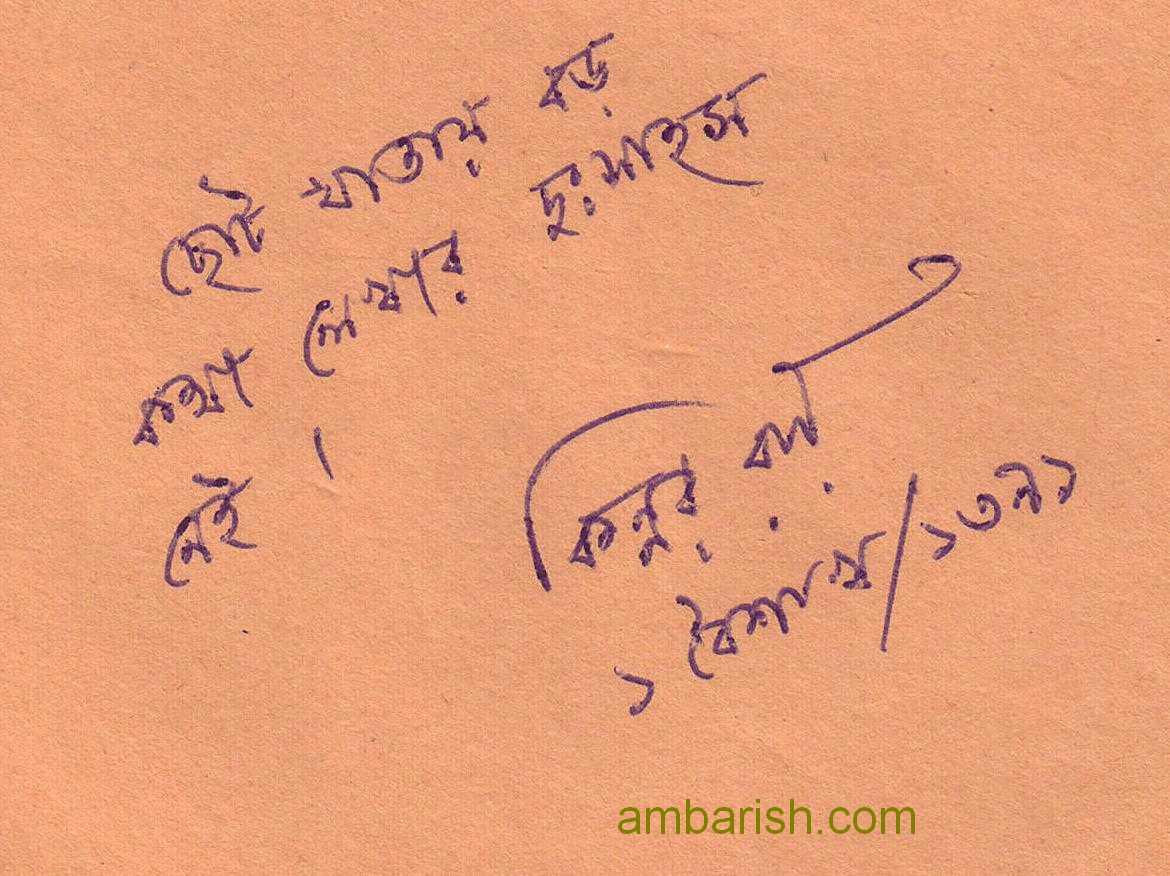 ছোট খাতায় বড়
কথা লেখার দুঃসাহস
নেই ।
কিন্নর রায়
১ বৈশাখ/১৩৯১
ambarish.com